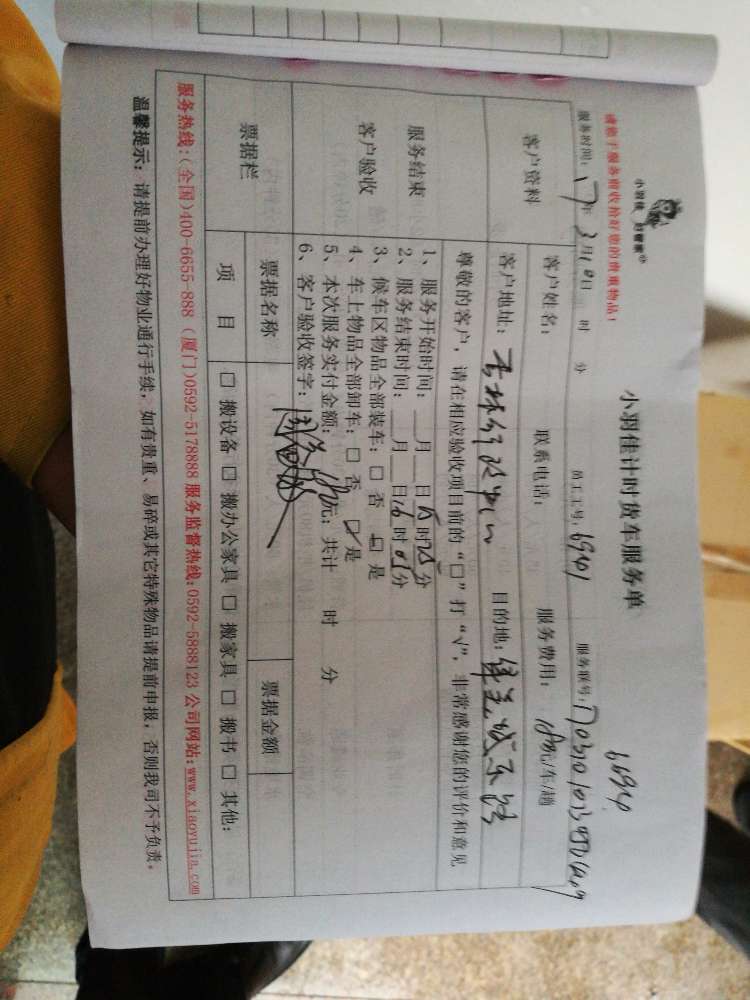 请您于服务前收拾好您的贵重物品!
小羽佳 好管家
小羽佳计时货车服务单
6940
服务时间: 17年3月10日 时 分 员工工号: 6941 服务联号:
客户资料
客户姓名: 联系电话: 服务费用: 180元/车/趟
客户地址: 目的地:
尊敬的客户, 请在相应验收项目前的“□”打“√”, 非常感谢您的评价和意见
服务结束
客户验收
1、服务开始时间: 月 日15时25分
2、服务结束时间: 月 日16时05分
3、候车区物品全部装车: □ 否 □ 是
4、车上物品全部卸车: □ 否 □ 是
5、本次服务实付金额: 元; 共计 时 分
6、客户验收签字:
票据栏
票据名称 票据金额
项 目 □ 搬设备 □ 搬办公家具 □ 搬家具 □ 搬书 □ 其他:
服务热线: (全国)400-6655-888 (厦门)0592-5178888 服务监督热线:0592-5888123 公司网站:www.xiaoyujia.com
温馨提示: 请提前办理好物业通行手续, 如有贵重、易碎或其它特殊物品请提前申报, 否则我司不予负责。